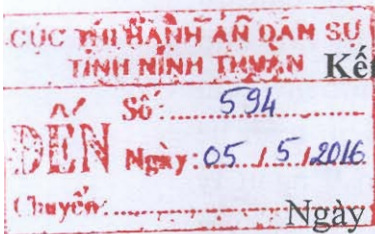 CỤC THI HÀNH ÁN DÂN SỰ
TỈNH NINH THUẬN Kế
ĐẾN Số: 594
Ngày: 05 / 5 / 2016
Chuyển:
Ngày